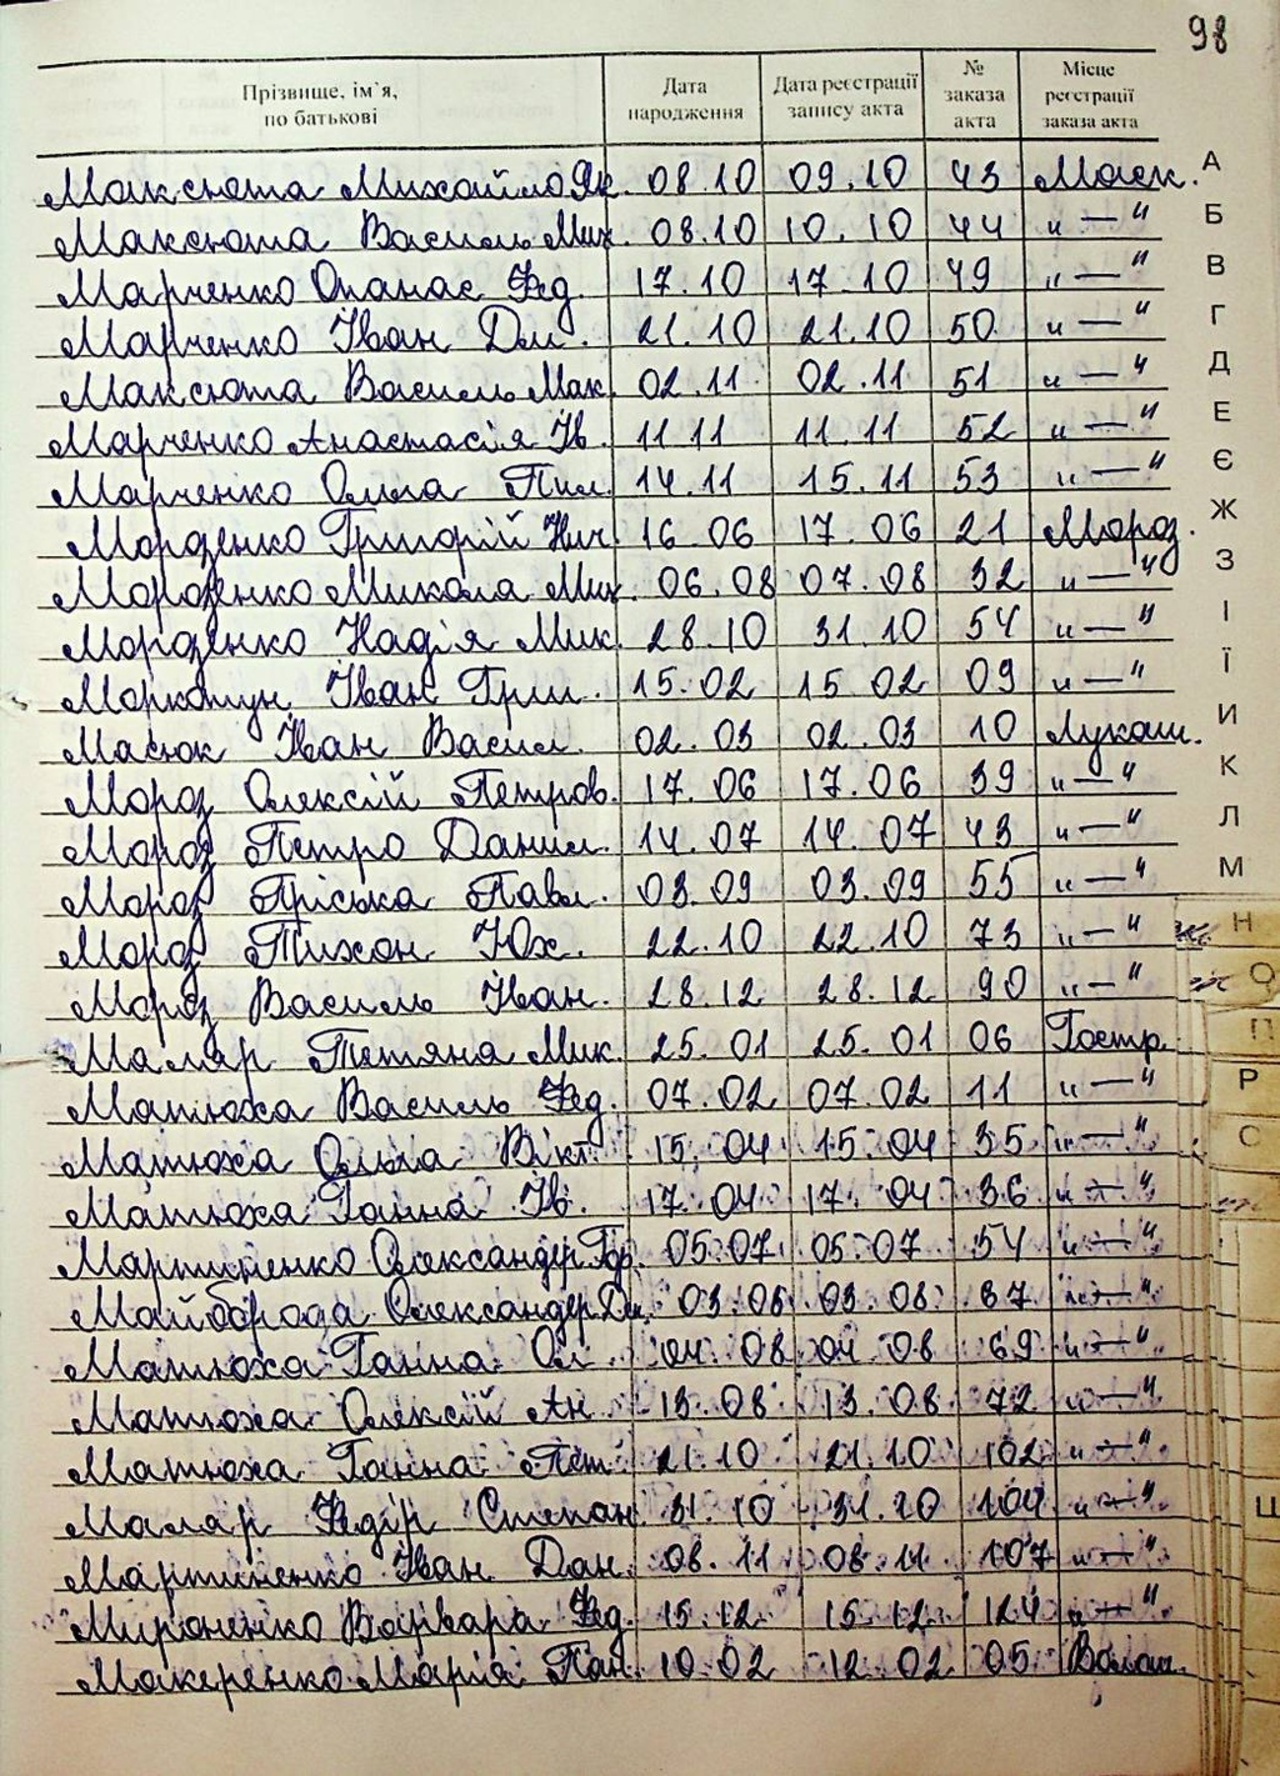 98
Прізвище, ім`я, по батькові Дата народження Дата реєстрації запису акта № заказа акта Місце реєстрації заказа акта
Максюта Михайло Як. 08.10 09.10 43 Моск. А
Максюта Василь Мих. 08.10 10.10 44 "—" Б
Марченко Опанас Фед. 17.10 17.10 49 "—" В
Марченко Іван Дм. 21.10 21.10 50 "—" Г
Максюта Василь Мак. 02.11 02.11 51 "—" Д
Марченко Анастасія Ів. 11.11 11.11 52 "—" Е
Марченко Ольга Пил. 14.11 15.11 53 "—" Є
Морозенко Григорій Нич. 16.06 17.06 21 Мороз. Ж
Морозенко Микола Мих. 06.08 07.08 32 "—" З
Морозенко Надія Мик. 28.10 31.10 54 "—" І
Моркотун Іван Гри. 15.02 15.02 09 "—" Ї
Масюк Іван Васил. 02.03 02.03 10 Лукаш. И
Мороз Олексій Петров. 17.06 17.06 39 "—" К
Мороз Петро Данил. 14.07 14.07 43 "—" Л
Мороз Пріська Павл. 03.09 03.09 55 "—" М
Мороз Тихон Юх. 22.10 22.10 73 "—" Н
Мороз Василь Іван. 28.12 28.12 90 "—" О
Маляр Тетяна Мик. 25.01 25.01 06 Гостр. П
Матюха Василь Фед. 07.02 07.02 11 "—" Р
Матюха Ольга Вікт. 15.04 15.04 35 "—" С
Матюха Ганна Ів. 17.04 17.04 36 "—"
Мартиненко Олександер Гр. 05.07 05.07 54 "—"
Майборода Олександер Дм. 03.08 03.08 67 "—"
Матюха Ганна Ол. 04.08 04.08 69 "—"
Матюха Олексій Ан. 13.08 13.08 72 "—"
Матюха Ганна Пет. 21.10 21.10 102 "—"
Маляр Федір Степан. 31.10 31.10 104 "—" Ш
Мартиненко Іван Дан. 08.11 08.11 107 "—"
Мироненко Варвара Фед. 15.12 15.12 124 "—"
Макеренко Марія Пан. 10.02 12.02 05 Волош.